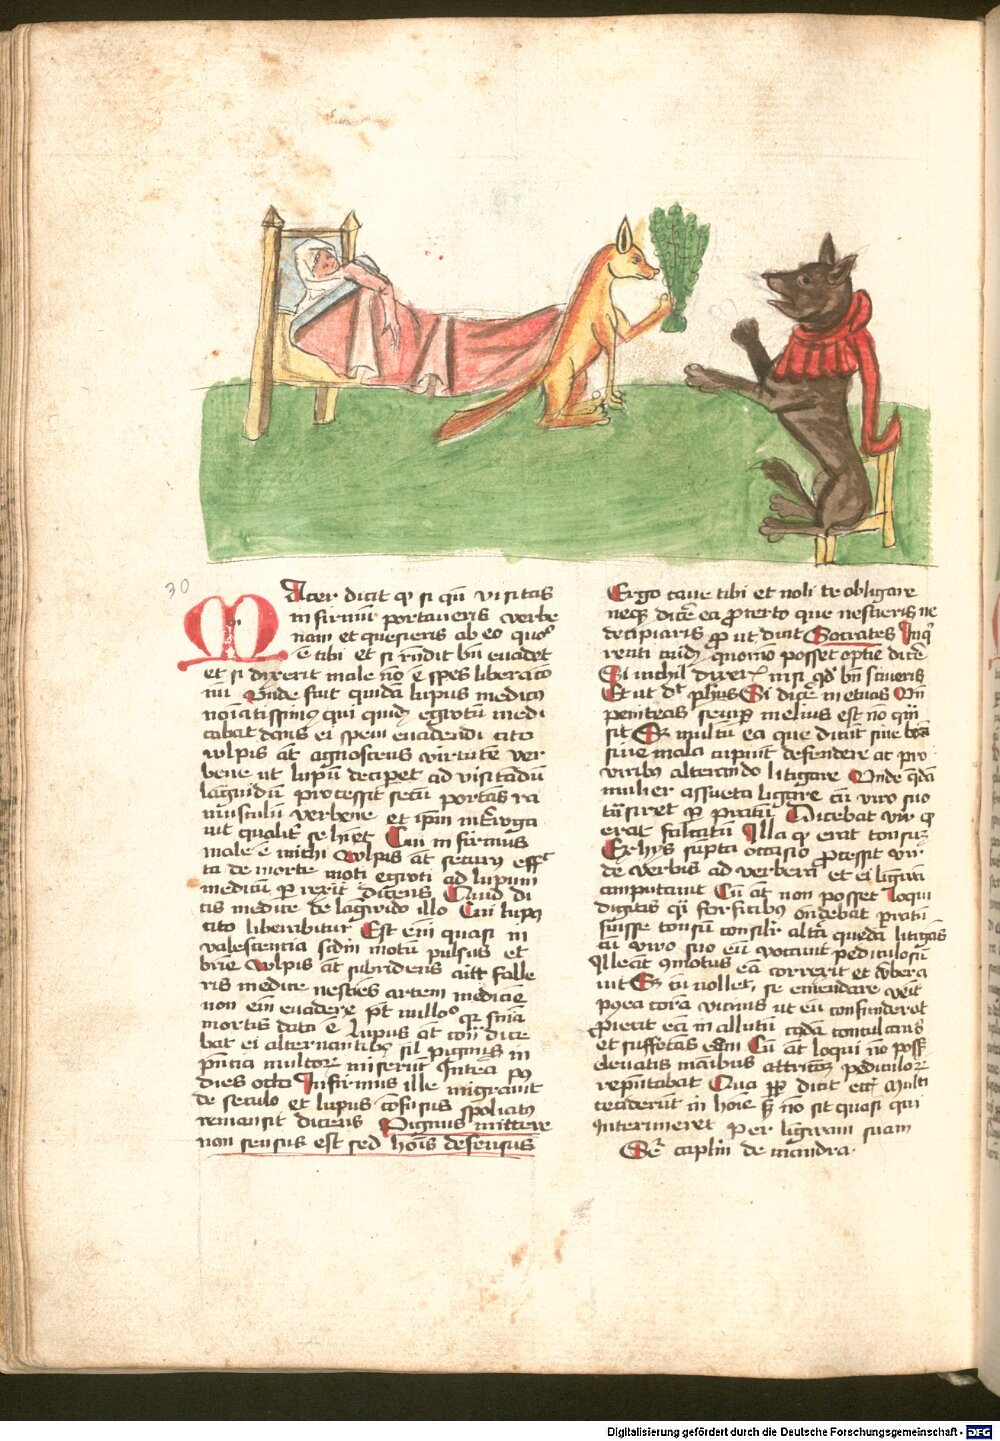 30
Macer dicit q si qn visitas
infirmum portaveris verbe
nam et quesieris ab eo quo
e tibi et si rndit bn evadet
et si dixerit male no e spes liberaco
nu Unde fuit quida lupus medicus
noiatissimus qui quid egrotu medi
cabat dans ei spem evadendi cito
vulpis at agnoscens virtute ver
bene ut lupu deciperet ad visitadu
laguidu processit secu portas ra
musculu verbene et ipm interroga
vit qualit se hret Cui infirmus
male e michi Vulpis at securus effc
ta de morte moti egroti ad lupum
medicu perrexit dicens Quid di
cis medice de laguido illo Cui lupus
cito liberabitur Est eni quasi in
valescencia scdm motu pulsus et
Vulpis at subridens ait falle
ris medice nescies artem medicie
non eni evadere pt nullo qr snia
mortis data e Lupus at dice
bat ei alternantibus sil pignus in
pncia multor miserut Interea post
dies octo Infirmus ille migravit
de seculo et lupus cofusus spoliatus
remansit dicens Pignus mittere
non sensus est sed hois defensus
Ergo cave tibi et noli te obligare
neque dice ea pro certo que nescieris ne
decipiaris ut dixit Socrates Inq
renti cuida quomo posset optie dice
Si nichil dixeris nisi qd bn sciveris
Et ut dt phus Si dice metuas Un
peniteas semp melius est no qm
sit Et multu ea que dicut sive bona
sive mala cupiut defendere ac pro
viribus altercando litigare Unde qda
mulier assueta litigare cu viro suo
tasiret per pratu Dicebat vir q
erat falcatu Illa q erat tonsuz
Ex hys supta occasio processit vir
de verbis ad verbera et ei ligua
amputavit Cu at non posset loqui
digitis qi forficibus ondebat pratu
fuisse tonsu consilr alta queda litigas
cu viro suo eu vocavit pediculosu
Ille at comotus ea correxit et verbera
vit Et cu nollet se emendare
postea cora vicinis ut eu confunderet
piecit ea in
et suffocas eam Cu at loqui no poss
elevatis manibus attritos pediculos
reputabat Qua ppr dicit ecc Multi
ceciderut in hoie s no sit quasi qui
interimeret Per liguam suam
Et caplm de mandra
Digitalisierung gefördert durch die Deutsche Forschungsgemeinschaft - DFG